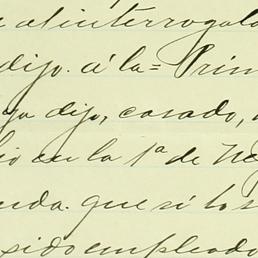 al interrogato
dijo. á la = Prim
ya dijo, casado,
io en la 1ª de Ne
nda. que si los
sido empleado